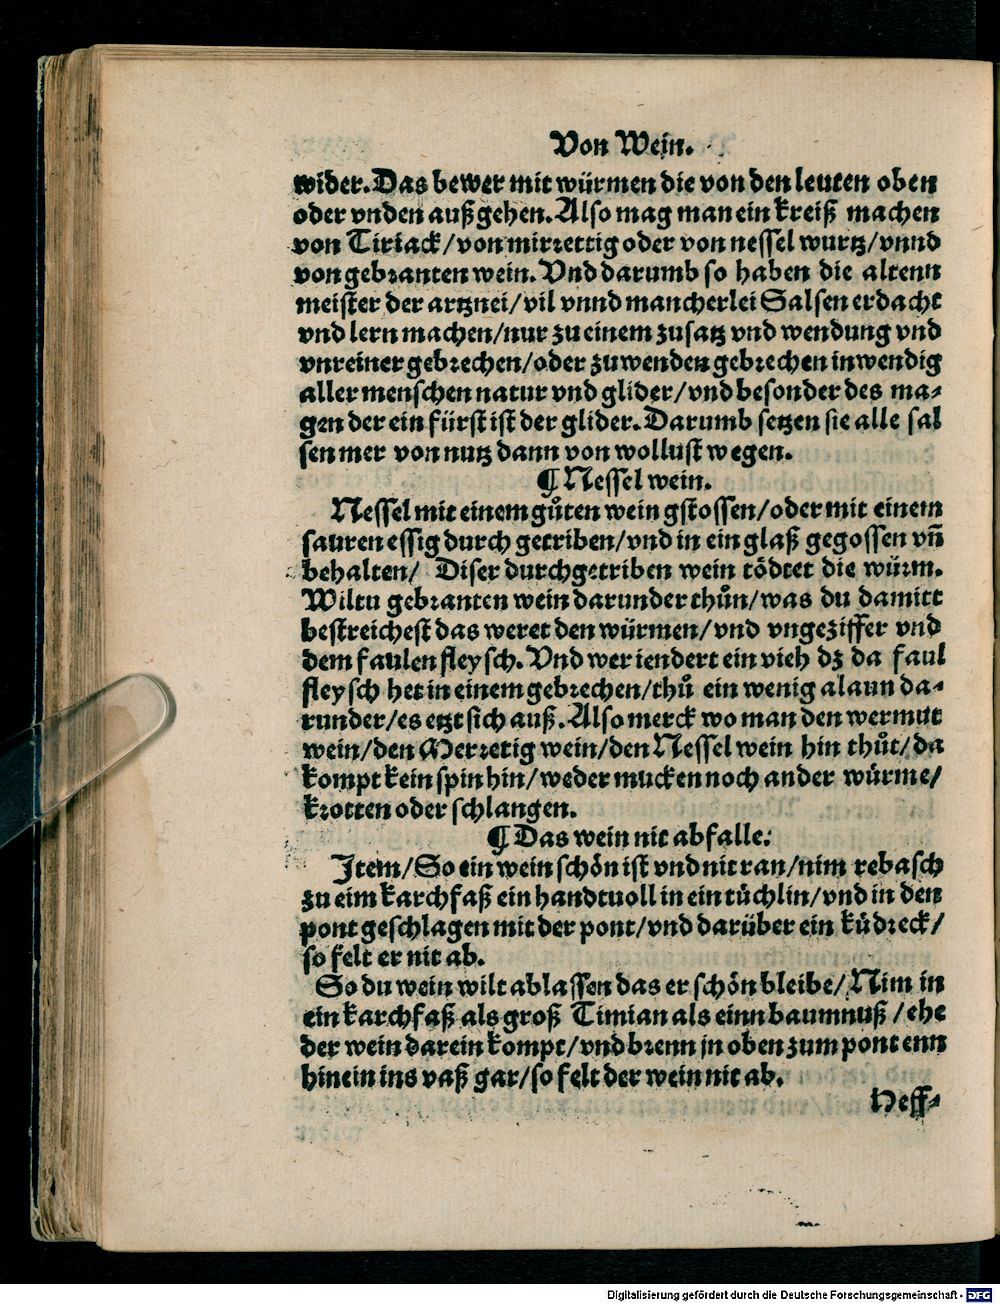 Von Wein.
wider. Das bewer mit würmen die von den leuten oben
oder vnden außgehen. Also mag man ein kreiß machen
von Tiriack/von mirrettig oder von nessel wurtz/vnnd
von gebranten wein. Vnd darumb so haben die altenn
meister der artznei/vil vnnd mancherlei Salsen erdacht
vnd lern machen/nur zu einem zusatz vnd wendung vnd
vnreiner gebrechen/oder zuwenden gebrechen inwendig
aller menschen natur vnd glider/vnd besonder des ma⸗
gen der ein fürst ist der glider. Darumb setzen sie alle sal
sen mer von nutz dann von wollust wegen.
¶ Nessel wein.
Nessel mit einem gůten wein gstossen/oder mit einem
sauren essig durch getriben/vnd in ein glaß gegossen vñ
behalten/ Diser durchgetriben wein tödtet die würm.
Wiltu gebranten wein darunder thůn/was du damitt
bestreichest das weret den würmen/vnd vngeziffer vnd
dem faulen fleysch. Vnd wer iendert ein vieh dz da faul
fleysch het in einem gebrechen/thů ein wenig alaun da⸗
runder/es etzt sich auß. Also merck wo man den wermut
wein/den Merretig wein/den Nessel wein hin thůt/da
kompt kein spin hin/weder mucken noch ander würme/
krotten oder schlangen.
¶ Das wein nit abfalle.
Item/So ein wein schön ist vnd nit ran/nim rebasch
zu eim karchfaß ein handtuoll in ein tüchlin/vnd in den
pont geschlagen mit der pont/vnd darüber ein küdreck/
so felt er nit ab.
So du wein wilt ablassen das er schön bleibe/Nim in
ein karchfaß als groß Timian als einn baumnuß/ehe
der wein darein kompt/vnd brenn jn oben zum pont enn
hinein ins vaß gar/so felt der wein nit ab.
Heff⸗
Digitalisierung gefördert durch die Deutsche Forschungsgemeinschaft - DFG